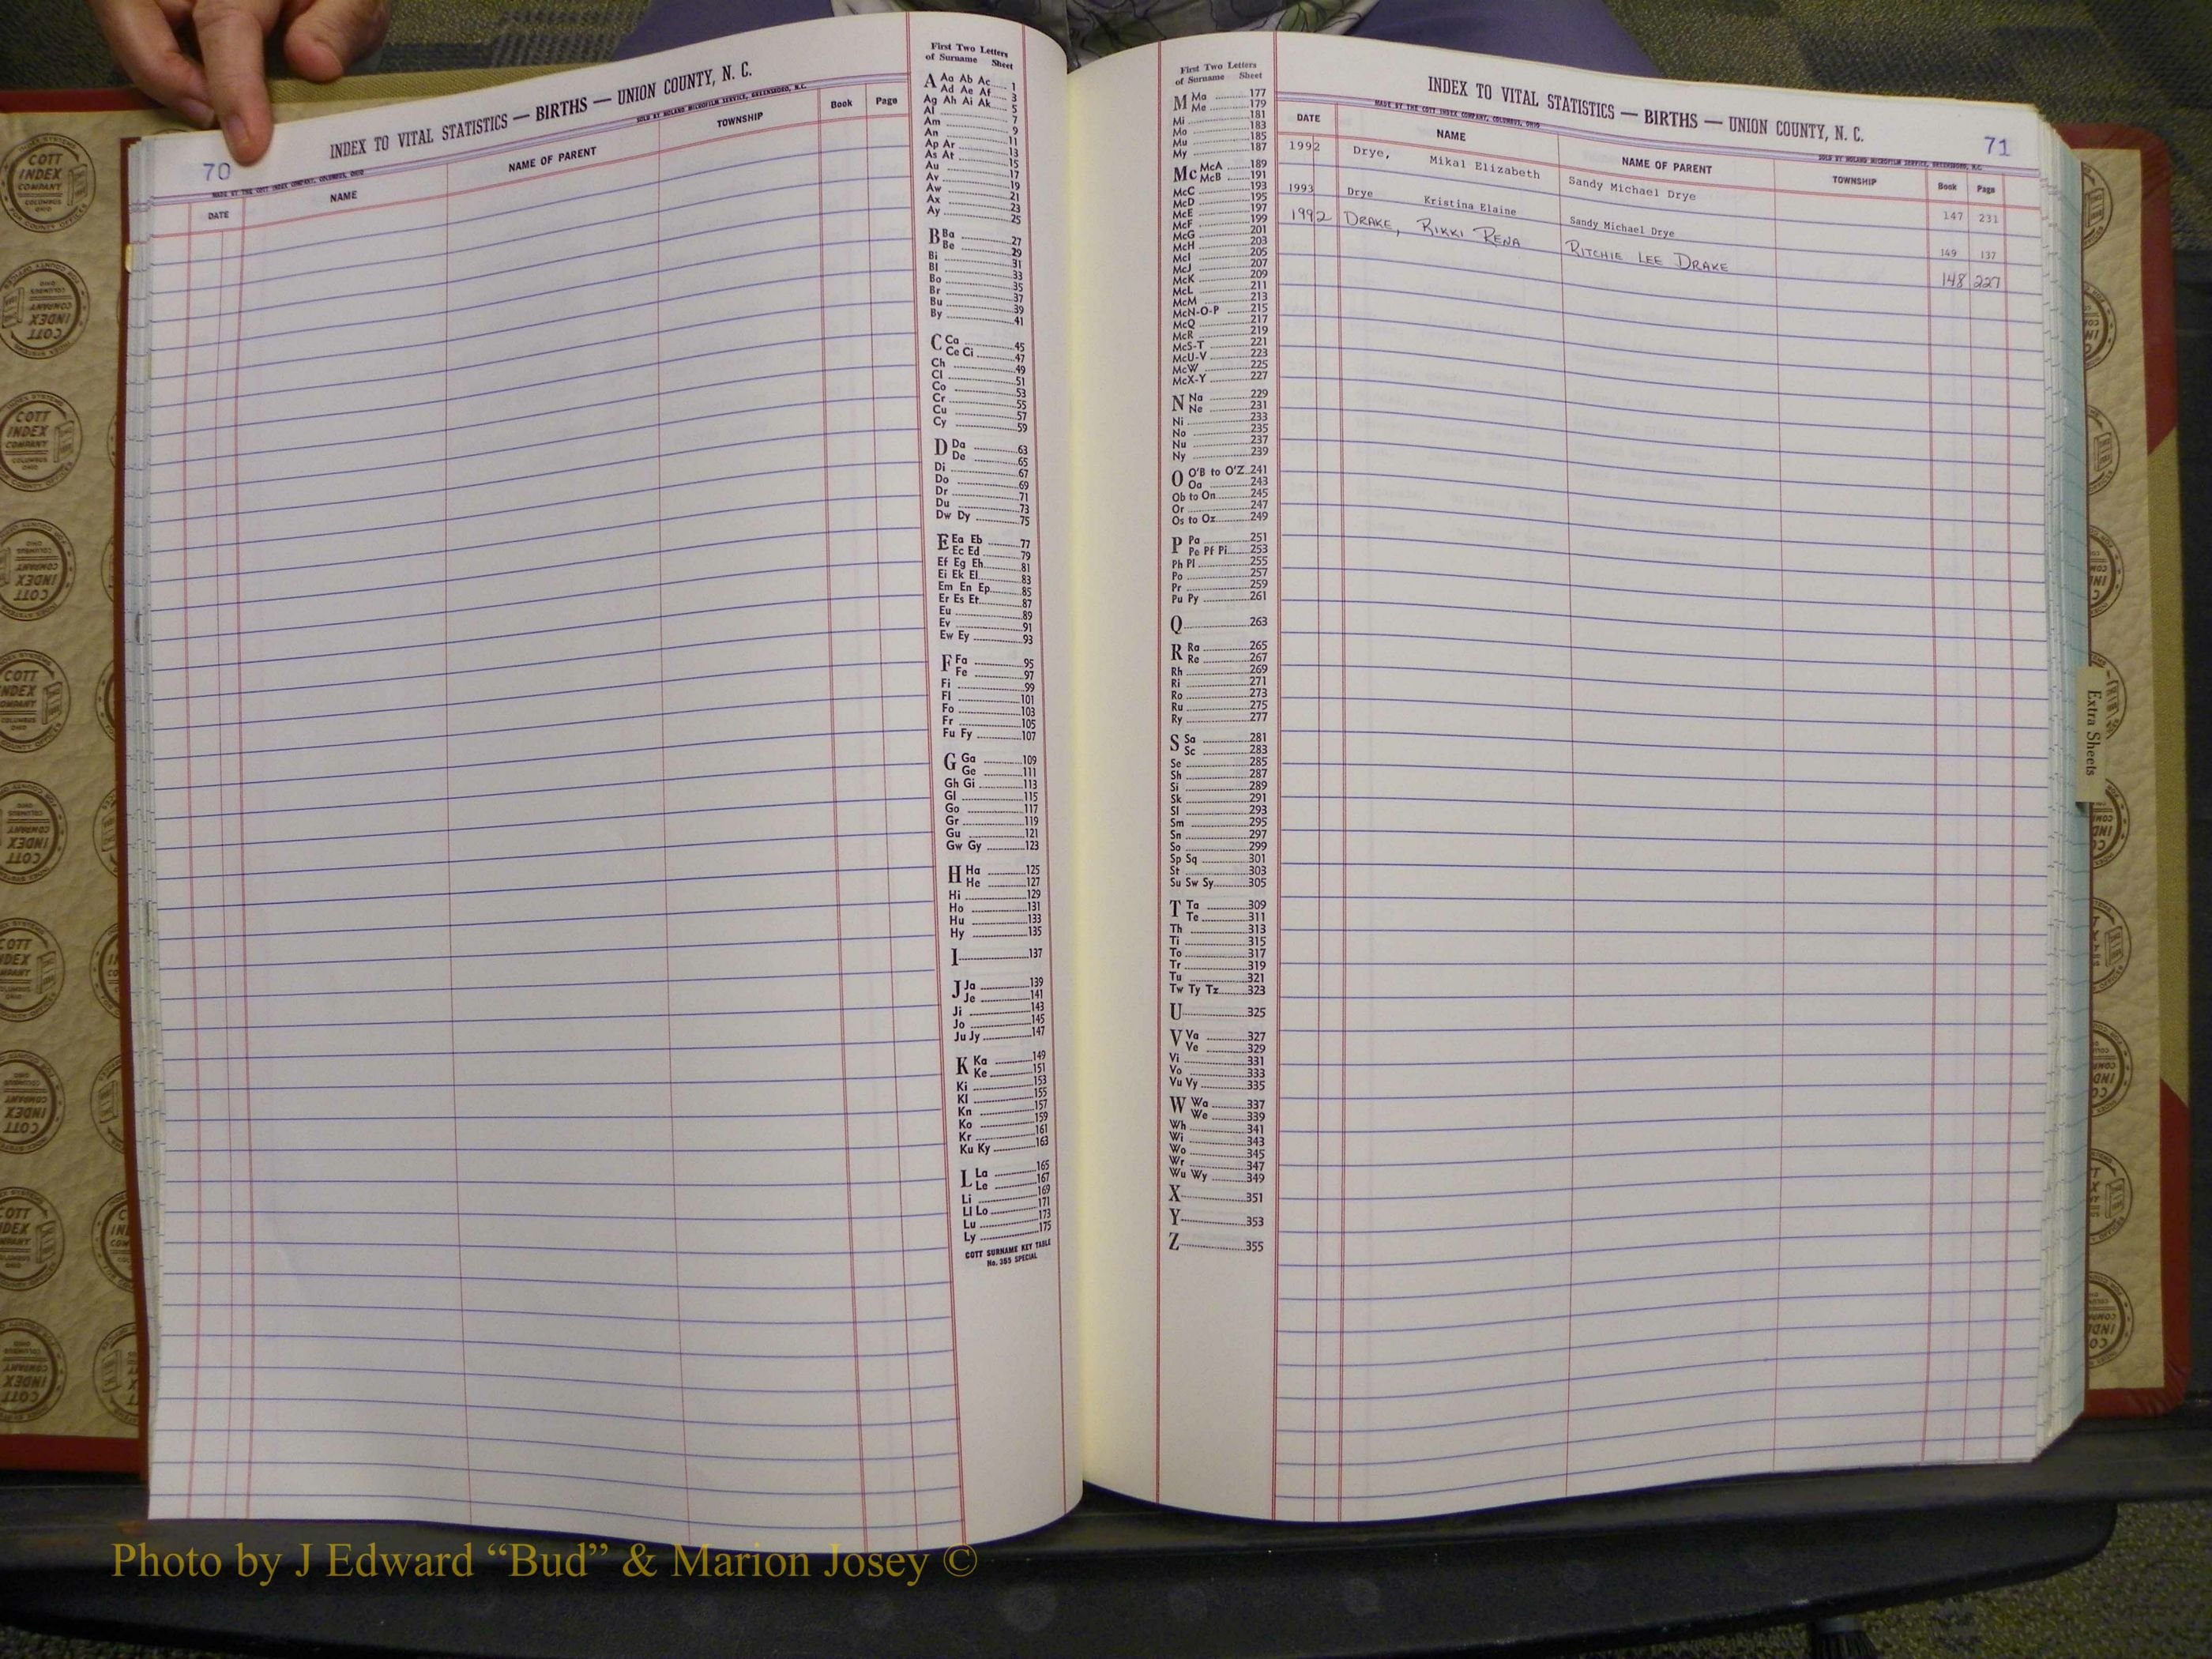 70
INDEX TO VITAL STATISTICS — BIRTHS — UNION COUNTY, N. C.
MADE BY THE COTT INDEX COMPANY, COLUMBUS, OHIO
SOLD BY NOLAND MICROFILM SERVICE, GREENSBORO, N.C.
DATE NAME NAME OF PARENT TOWNSHIP Book Page
First Two Letters
of Surname Sheet
A Aa Ab Ac 1
Ad Ae Af 3
Ag Ah Ai Ak 5
Al 7
Am 9
An 11
Ap Ar 13
As At 15
Au 17
Av 19
Aw 21
Ax 23
Ay 25
B Ba 27
Be 29
Bi 31
Bl 33
Bo 35
Br 37
Bu 39
By 41
C Ca 45
Ce Ci 47
Ch 49
Cl 51
Co 53
Cr 55
Cu 57
Cy 59
D Da 63
De 65
Di 67
Do 69
Dr 71
Du 73
Dw Dy 75
E Ea Eb 77
Ec Ed 79
Ef Eg Eh 81
Ei Ek El 83
Em En Ep 85
Er Es Et 87
Eu 89
Ev 91
Ew Ey 93
F Fa 95
Fe 97
Fi 99
Fl 101
Fo 103
Fr 105
Fu Fy 107
G Ga 109
Ge 111
Gh Gi 113
Gl 115
Go 117
Gr 119
Gu 121
Gw Gy 123
H Ha 125
He 127
Hi 129
Ho 131
Hu 133
Hy 135
I 137
J Ja 139
Je 141
Ji 143
Jo 145
Ju Jy 147
K Ka 149
Ke 151
Ki 153
Kl 155
Kn 157
Ko 159
Kr 161
Ku Ky 163
L La 165
Le 167
Li 169
Ll Lo 171
Lu 173
Ly 175
COTT SURNAME KEY TABLE
No. 355 SPECIAL
First Two Letters
of Surname Sheet
M Ma 177
Me 179
Mi 181
Mo 183
Mu 185
My 187
Mc McA 189
McB 191
McC 193
McD 195
McE 197
McF 199
McG 201
McH 203
McI 205
McJ 207
McK 209
McL 211
McM 213
McN-O-P 215
McQ 217
McR 219
McS-T 221
McU-V 223
McW 225
McX-Y 227
N Na 229
Ne 231
Ni 233
No 235
Nu 237
Ny 239
O O'B to O'Z 241
Oa 243
Ob to On 245
Or 247
Os to Oz 249
P Pa 251
Pe Pf Pi 253
Ph Pl 255
Po 257
Pr 259
Pu Py 261
Q 263
R Ra 265
Re 267
Rh 269
Ri 271
Ro 273
Ru 275
Ry 277
S Sa 281
Sc 283
Se 285
Sh 287
Si 289
Sk 291
Sl 293
Sm 295
Sn 297
So 299
Sp Sq 301
St 303
Su Sw Sy 305
T Ta 309
Te 311
Th 313
Ti 315
To 317
Tr 319
Tu 321
Tw Ty Tz 323
U 325
V Va 327
Ve 329
Vi 331
Vo 333
Vu Vy 335
W Wa 337
We 339
Wh 341
Wi 343
Wo 345
Wr 347
Wu Wy 349
X 351
Y 353
Z 355
71
INDEX TO VITAL STATISTICS — BIRTHS — UNION COUNTY, N. C.
MADE BY THE COTT INDEX COMPANY, COLUMBUS, OHIO
SOLD BY NOLAND MICROFILM SERVICE, GREENSBORO, N.C.
DATE NAME NAME OF PARENT TOWNSHIP Book Page
1992 Drye, Mikal Elizabeth Sandy Michael Drye 147 231
1993 Drye Kristina Elaine Sandy Michael Drye 149 137
1992 DRAKE, RIKKI RENA RITCHIE LEE DRAKE 148 227
Extra Sheets
COTT INDEX COMPANY
Photo by J Edward “Bud” & Marion Josey ©